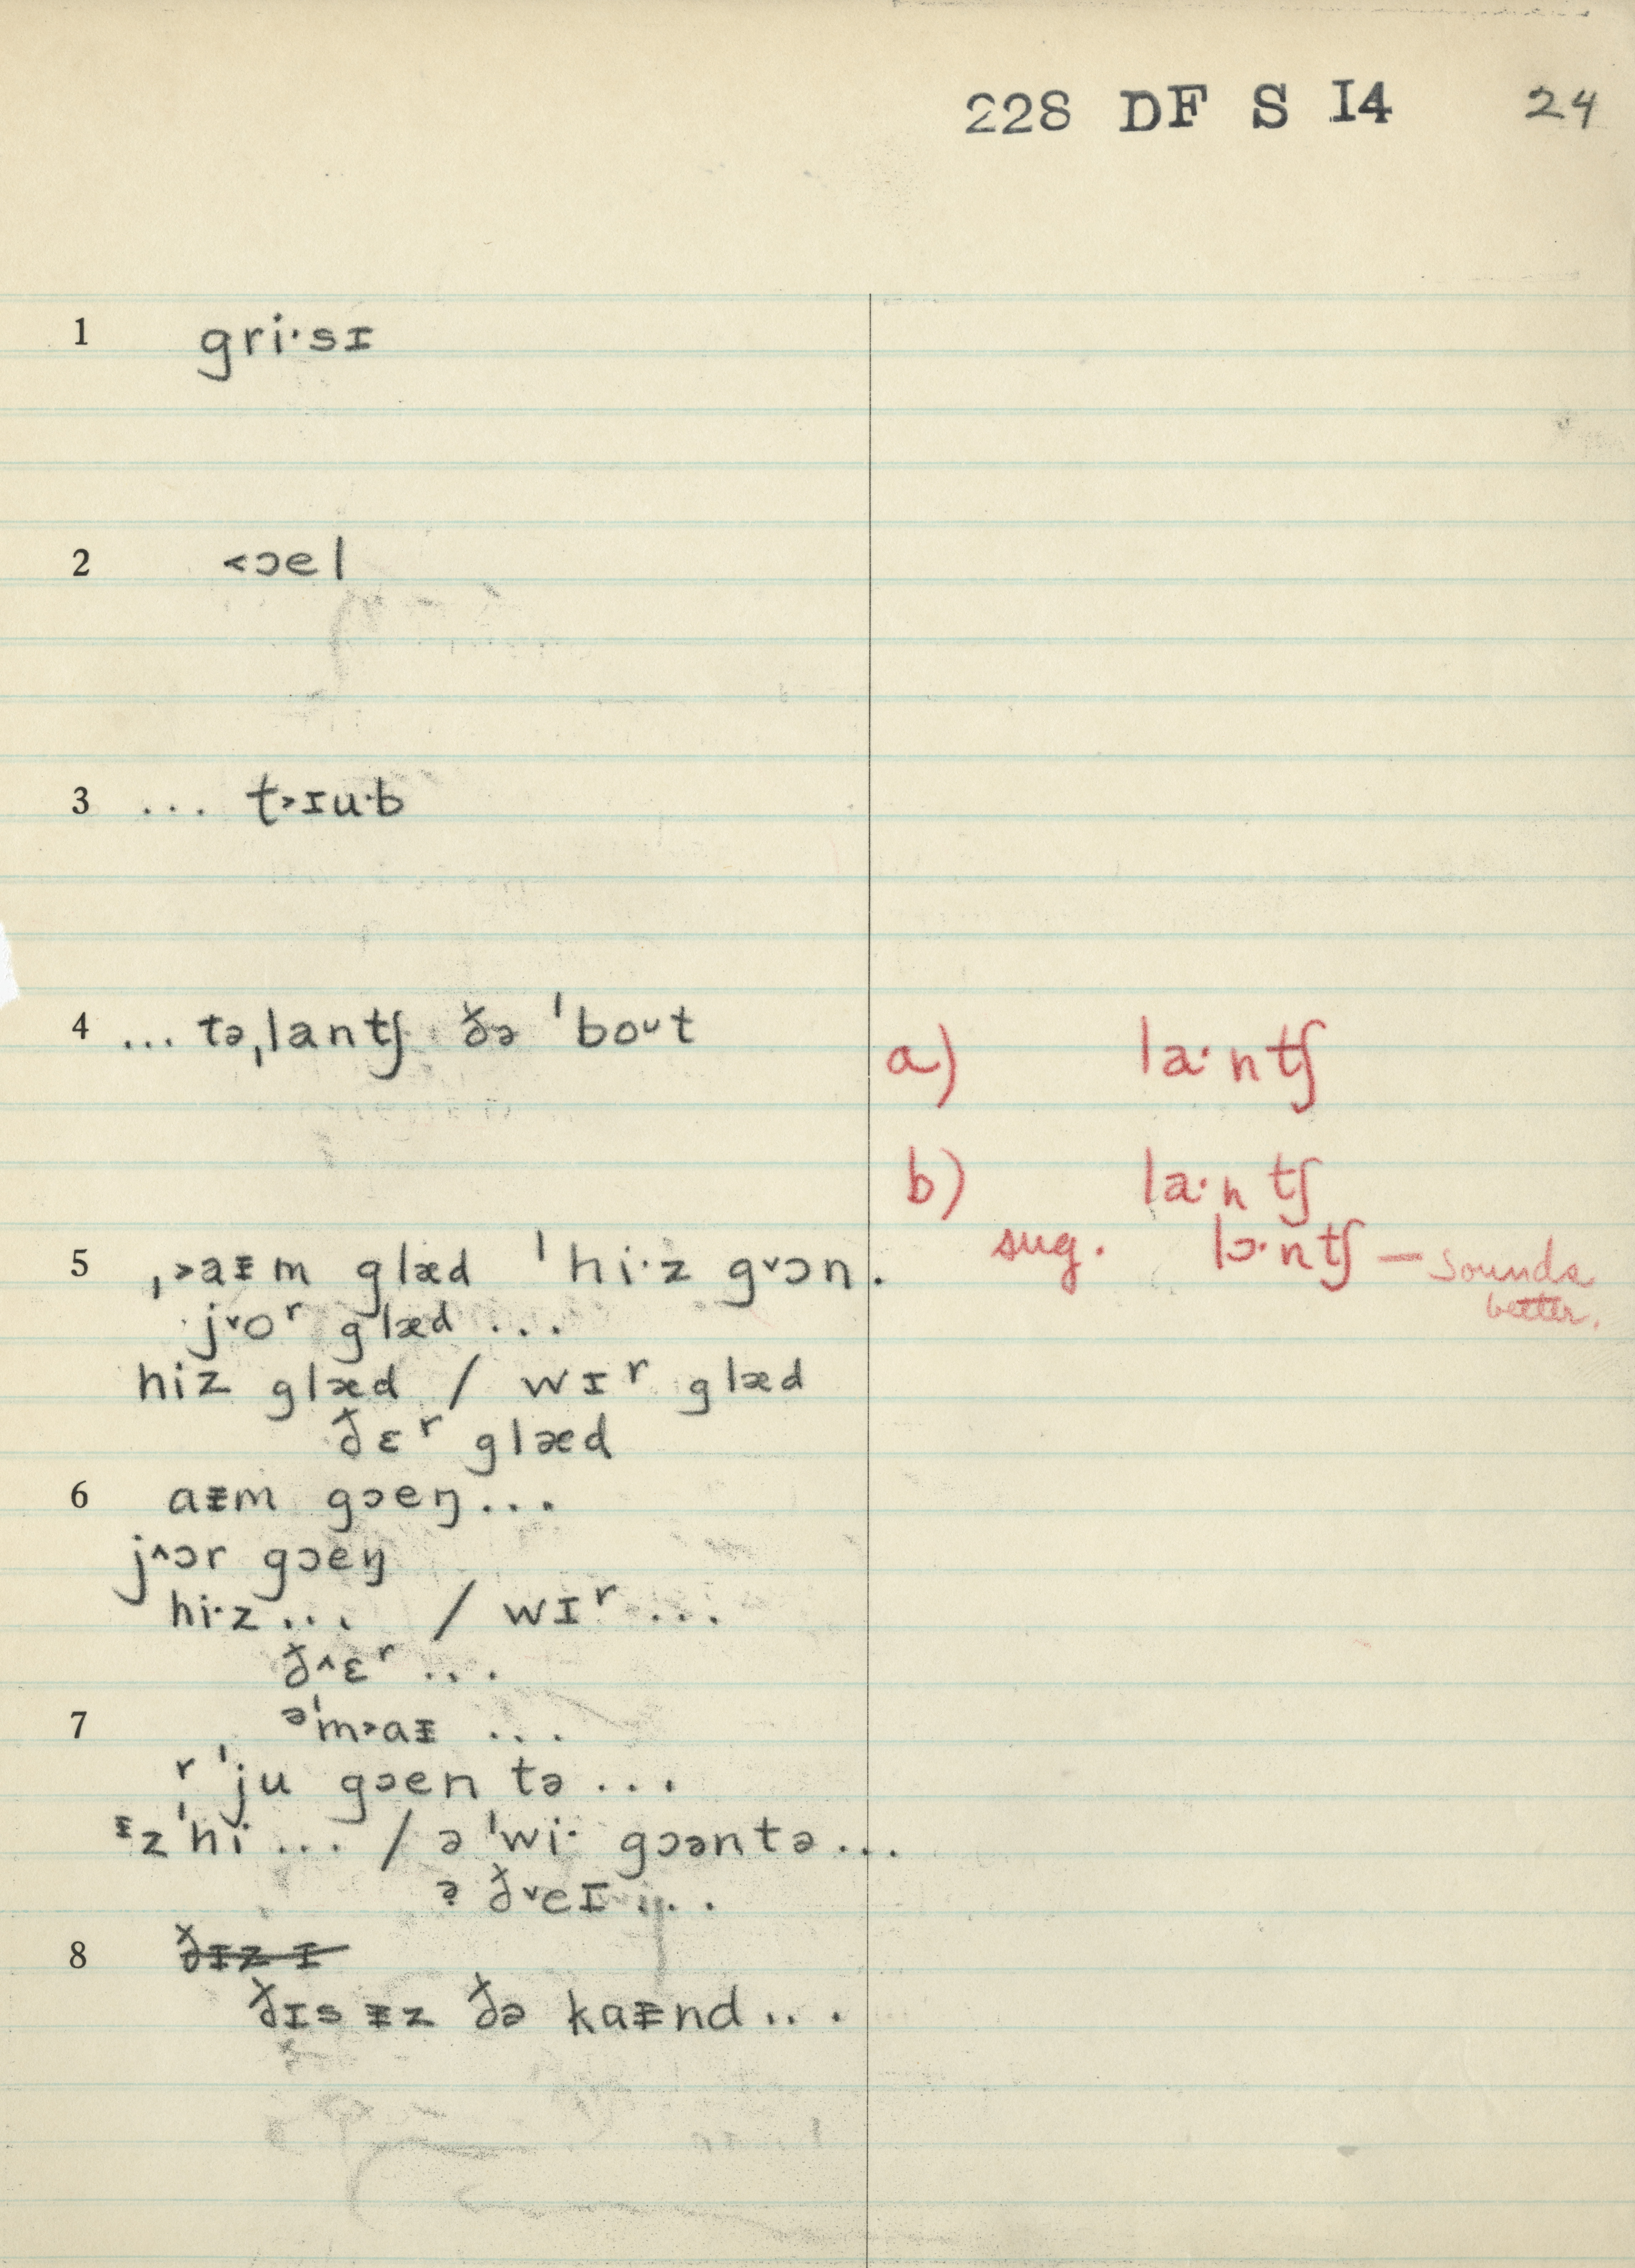 228 DF S I4 24
1 gri·sɪ
2 ˂ɔel
3 ... t˃ɪu·b
4 ... tə,lantʃ ðə 'boᴜt
a) la·ntʃ
b) la·ntʃ
sug. lɔ·ntʃ — sounds
better.
5 ,˃aᵻm glæd 'hi·z g˅ɔn.
j˅oʳ glæd ...
hiz glæd / wɪʳ glæd
ðɛʳ glæd
6 aᵻm gɔeŋ...
j˄ɔr gɔeŋ
hi·z ... / wɪʳ ...
ð˄ɛʳ ...
7 ᵊ'm˃aᵻ ...
ʳ'ju gɔen tə ...
ᵻz'hi ... / ə 'wi· gɔəntə ...
ə ð˅eɪ ...
8 ðɪz ɪ
ðɪs ᵻz ðə kaᵻnd ...